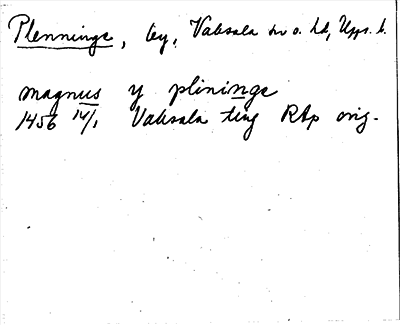 Plenninge, by, Vaksala sn o. hd, Upps. l.
magnus y plininge
1456 14/1 Vaksala ting RAp orig.